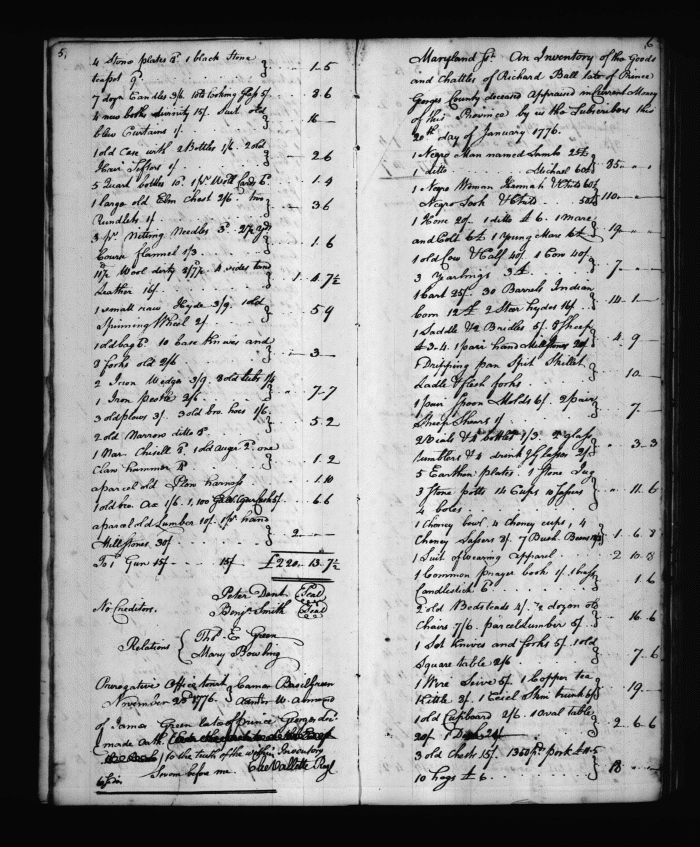 5,
4 Stone plates 8d. 1 black Stone
teapot 9d. 1 - 5
7 dozn Candles 3/6 1 old Looking Glass 5/ 8 6
4 new books divinity 15/. Suit old
blew Curtains 1/. 16 —
1 old Case with 2 Bottles 1/6. 2 old
Hair Sifters 1/. 2 6
5 Quart bottles 10d. 1 pr. Wool Cards 6d. 1. 4
1 large old Elm Chest 2/6. two
Rundlets 1/. 3 6
3 pr. Neting Needles 3d. 2¾ yd
Course flannel 1/3 1. 6
11¾ Wool dirty 4 sides tand
Leather 16/. 1. 4. 7½
1 small raw Hyde 3/9. 1 old
Spinning Wheel 2/ 5 9
1 old bag 6d. 10 base Knives and
2 forks old 2/6 — 3 —
2 Iron Wedges 3/9. 3 old tubs 1/4
1 Iron pestle 2/6 7 - 7
3 old plows 3/. 3 old bro. hoes 1/6.
2 old Narrow ditto 8d. 5 2
1 Nar. Chisell 6d. 1 old Auger 2d. one
Claw hammer 1. 2
a parcel old Plow harness 1. 10
1 old bro. Axe 1/6. 1,100 5/ 6 6
a parcel old Lumber 10/. 1 pr. hand
Millstones 30/ 2 — —
To 1 Gun 15/ 15/ £220. 13. 7½
Peter Dent (Seal)
No Creditors. Benja. Smith (Seal)
Relations { Thos. E. Green
Mary Bowling
Prerogative Office court } Came Basil Green
November 23d 1776. } Admr. &
of James Green late of Prince Georges Co.
made Oath
to the truth of the within Inventory
Sworn before me. Elie Vallette Regr
6
Maryland Sst. An Inventory of the Goods
and Chattles of Richard Ball late of Prince
Georges County deceased Appraised in Current Money
of this Province by us the Subscribers this
20th day of January 1776.
1 Negro Man named Sambo 25£
1 ditto Michael 60£ 85 - . - .
1 Negro Woman Hannah & Child 60£
Negro & Child 50£ 110 - . - .
1 Horse 20/. 1 ditto £6. 1 Mare
and Colt 6£ 1 Young Mare 6£ 19 - . - .
1 old Cow & Calf 40/ 1 Cow 40/
3 Yearlings 3£ 7 - . - .
1 Cart 25/. 30 Barrels Indian
Corn 12£ 2 Steer hydes 16/. 14. 1 —
1 Saddle & 2 Bridles 5/. 8 Sheep
£3-4. 1 pair hand Millstones 20/ 4. 9 —
1 Dripping pan Spit Skillet
Ladle & flesh forks 10 —
1 pair Spoon Molds 6/. 2 pair
Sheep Shears 1/. 7 —
2 & 4 bottles 1/3. 2 glass
tumblers & 4 drink'g Glasses 2/ 3 - 3
5 Earthen plates. 1 Stone Jug
3 Stone potts 14 Cups 10 Sassers
4 boles 11. 6
1 Cheney bowl. 4 Cheney cups, 4
Cheney Sassers 3/. 7 Bush. Beans 1. 6. 8
1 Suit of wearing apparel 2 10. 8
1 Common prayer book 1/. 1 brass
Candlestick 6d 1. 6
2 old Bedsteads 4/. ½ dozen old
Chairs 7/6. parcel Lumber 5/. 16. 6
1 Set Knives and forks 5/. 1 old
Square table 2/6 7. 6
1 Wire Seive 5/. 1 Copper tea
Kittle 2/. 1 Skin trunk 19. —
1 old Cupboard 2/6. 1 Oval table
20/. 1 Desk 24/ 2. 6. 6
3 old Chests 15/. 1360 lb. pork £11-5
10 hogs £6. 18 - . - .